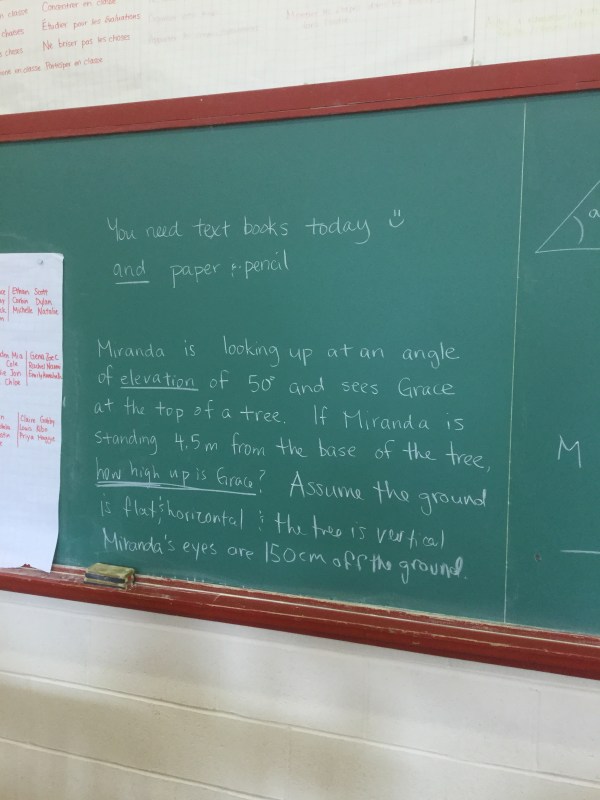 Concentrer en classe
en classe
Étudier pour les évaluations
Ne briser pas les choses
en classe
Participer en classe
You need text books today
and paper & pencil
Ethan Scott
Dylan
Michelle Natalie
Mia
Cole
Chloe
Miranda is looking up at an angle
of elevation of 50° and sees Grace
at the top of a tree. If Miranda is
standing 4.5m from the base of the tree,
how high up is Grace? Assume the ground
is flat & horizontal & the tree is vertical
Miranda's eyes are 150cm off the ground.
Claire Gabby
Priya Maggie
a
M